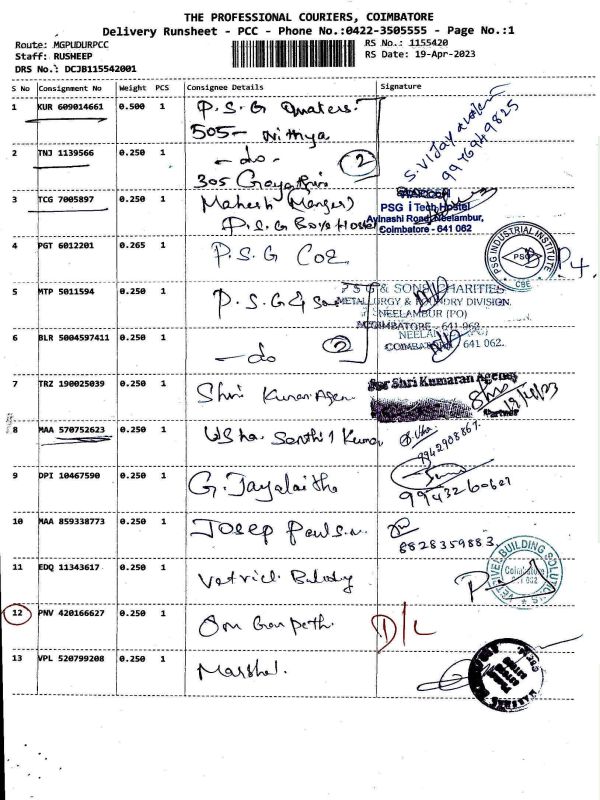 THE PROFESSIONAL COURIERS, COIMBATORE
Delivery Runsheet - PCC - Phone No.:0422-3505555 - Page No.:1
Route: MGPUDURPCC RS No.: 1155420
Staff: RUSHEEP RS Date: 19-Apr-2023
DRS No.: DCJB115542001
S No Consignment No Weight PCS Consignee Details Signature
1 KUR 609014661 0.500 1 P.S.G Quaters.
505- Nithya
S. VIJAY
2 TNJ 1139566 0.250 1 - do - 2
305 Gayathri
3 TCG 7005897 0.250 1 Mahesh (Manger)
P.S.G Boys Hostel
PSG i Tech Hostel
Avinashi Road, Neelambur,
Coimbatore - 641 062
4 PGT 6012201 0.265 1 P.S.G COE
PSG INDUSTRIAL INSTITUTE
PSG
CBE
5 MTP 5011594 0.250 1 P.S.G & Sons
PSG & SONS CHARITIES
METALLURGY & FOUNDRY DIVISION.
NEELAMBUR (PO)
COIMBATORE - 641 062.
6 BLR 5004597411 0.250 1 - do 2
COIMBATORE 641 062.
7 TRZ 190025039 0.250 1 Shri Kumaran Agen
For Shri Kumaran Agency
Partner
19/4/23
8 MAA 570752623 0.250 1 Usha Senthil Kumar
9942908867
9 DPI 10467590 0.250 1 G. Jayalaitha
10 MAA 859338773 0.250 1 Josep
8828359883
11 EDQ 11343617 0.250 1
VETRIVEL BUILDING SOLUTIONS
Coimbatore
12 PNV 420166627 0.250 1 Om Ganpeth D/L
13 VPL 520799208 0.250 1 Marshel.